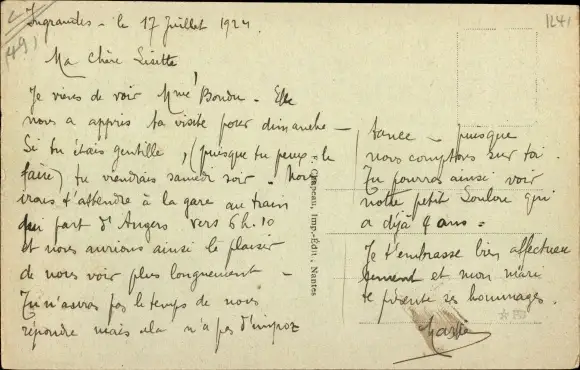 49)
1241
Ingrandes - le 17 Juillet 1924.
Ma chère Lisette
Je viens de voir Mme Bondu. Elle
nous a appris ta visite pour dimanche -
Si tu étais gentille, (puisque tu peux le
faire) tu viendrais samedi soir - Nous
irons t'attendre à la gare au train
qui part d'Angers vers 6h.10
et nous aurions ainsi le plaisir
de nous voir plus longuement -
Tu n'auras pas le temps de nous
répondre mais cela n'a pas d'impor
tance - puisque
nous comptons sur toi.
Tu pourras ainsi voir
notre petit Loulou qui
a déjà 4 ans.
Je t'embrasse bien affectueu
sement et mon mari
te présente ses hommages.
F. Chapeau, Imp.-Edit., Nantes